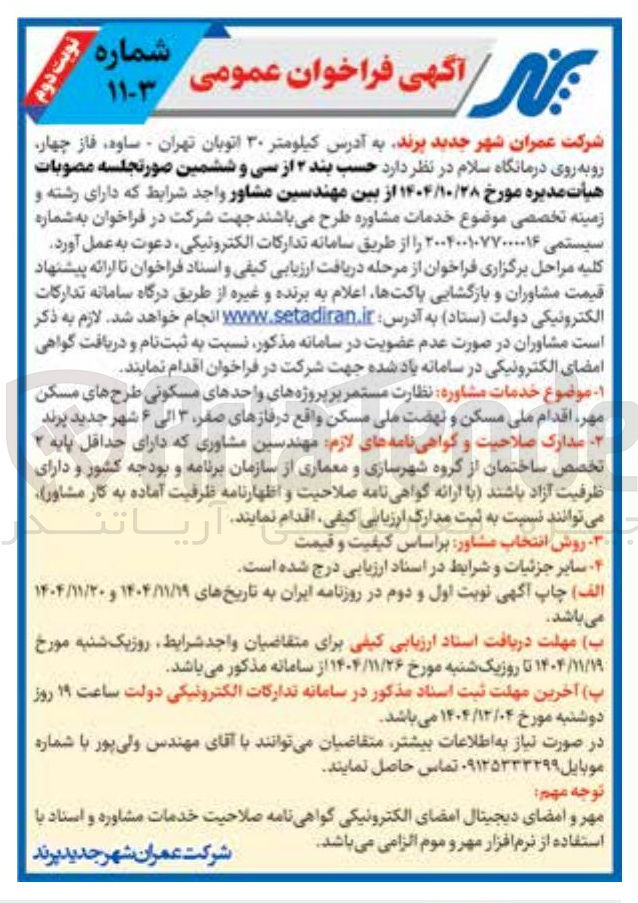 نوبت دوم
شماره
۱۱-۳
آگهی فراخوان عمومی
پرند
شرکت عمران شهر جدید پرند، به آدرس کیلومتر ۳۰ اتوبان تهران - ساوه، فاز چهار،
روبه‌روی درمانگاه سلام در نظر دارد حسب بند ۲ از سی و ششمین صورتجلسه مصوبات
هیأت‌مدیره مورخ ۱۴۰۴/۱۰/۲۸ از بین مهندسین مشاور واجد شرایط که دارای رشته و
زمینه تخصصی موضوع خدمات مشاوره طرح می‌باشند جهت شرکت در فراخوان به‌شماره
سیستمی ۲۰۰۴۰۰۱۰۷۷۰۰۰۰۱۶ را از طریق سامانه تدارکات الکترونیکی، دعوت به‌عمل آورد.
کلیه مراحل برگزاری فراخوان از مرحله دریافت ارزیابی کیفی و اسناد فراخوان تا ارائه پیشنهاد
قیمت مشاوران و بازگشایی پاکت‌ها، اعلام به برنده و غیره از طریق درگاه سامانه تدارکات
الکترونیکی دولت (ستاد) به آدرس: www.setadiran.ir انجام خواهد شد. لازم به ذکر
است مشاوران در صورت عدم عضویت در سامانه مذکور، نسبت به ثبت‌نام و دریافت گواهی
امضای الکترونیکی در سامانه یاد شده جهت شرکت در فراخوان اقدام نمایند.
۱- موضوع خدمات مشاوره: نظارت مستمر بر پروژه‌های واحدهای مسکونی طرح‌های مسکن
مهر، اقدام ملی مسکن و نهضت ملی مسکن واقع در فازهای صفر، ۳ الی ۶ شهر جدید پرند
۲- مدارک صلاحیت و گواهی‌نامه‌های لازم: مهندسین مشاوری که دارای حداقل پایه ۲
تخصص ساختمان از گروه شهرسازی و معماری از سازمان برنامه و بودجه کشور و دارای
ظرفیت آزاد باشند (با ارائه گواهی‌نامه صلاحیت و اظهارنامه ظرفیت آماده به کار مشاور)،
می‌توانند نسبت به ثبت مدارک ارزیابی کیفی، اقدام نمایند.
۳- روش انتخاب مشاور: براساس کیفیت و قیمت
۴- سایر جزئیات و شرایط در اسناد ارزیابی درج شده است.
الف) چاپ آگهی نوبت اول و دوم در روزنامه ایران به تاریخ‌های ۱۴۰۴/۱۱/۱۹ و ۱۴۰۴/۱۱/۲۰
می‌باشد.
ب) مهلت دریافت اسناد ارزیابی کیفی برای متقاضیان واجدشرایط، روزیک‌شنبه مورخ
۱۴۰۴/۱۱/۱۹ تا روزیک‌شنبه مورخ ۱۴۰۴/۱۱/۲۶ از سامانه مذکور می‌باشد.
پ) آخرین مهلت ثبت اسناد مذکور در سامانه تدارکات الکترونیکی دولت ساعت ۱۹ روز
دوشنبه مورخ ۱۴۰۴/۱۲/۰۴ می‌باشد.
در صورت نیاز به‌اطلاعات بیشتر، متقاضیان می‌توانند با آقای مهندس ولی‌پور با شماره
موبایل ۰۹۱۲۵۳۳۳۲۹۹ تماس حاصل نمایند.
توجه مهم:
مهر و امضای دیجیتال امضای الکترونیکی گواهی‌نامه صلاحیت خدمات مشاوره و اسناد با
استفاده از نرم‌افزار مهر و موم الزامی می‌باشد.
شرکت عمران شهر جدید پرند